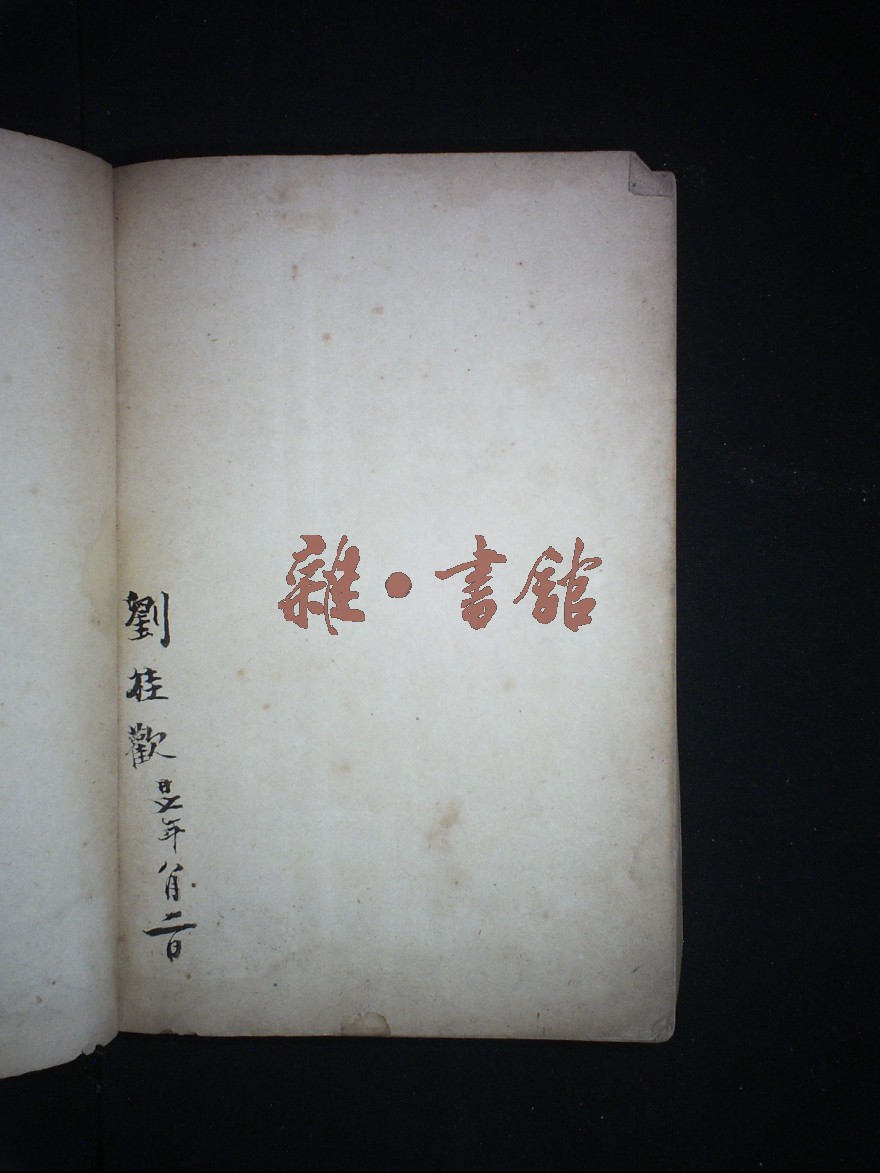 雜·書館
劉桂歡
年八月二日